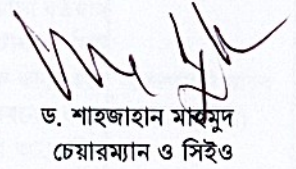 ড. শাহজাহান মাহমুদ
চেয়ারম্যান ও সিইও